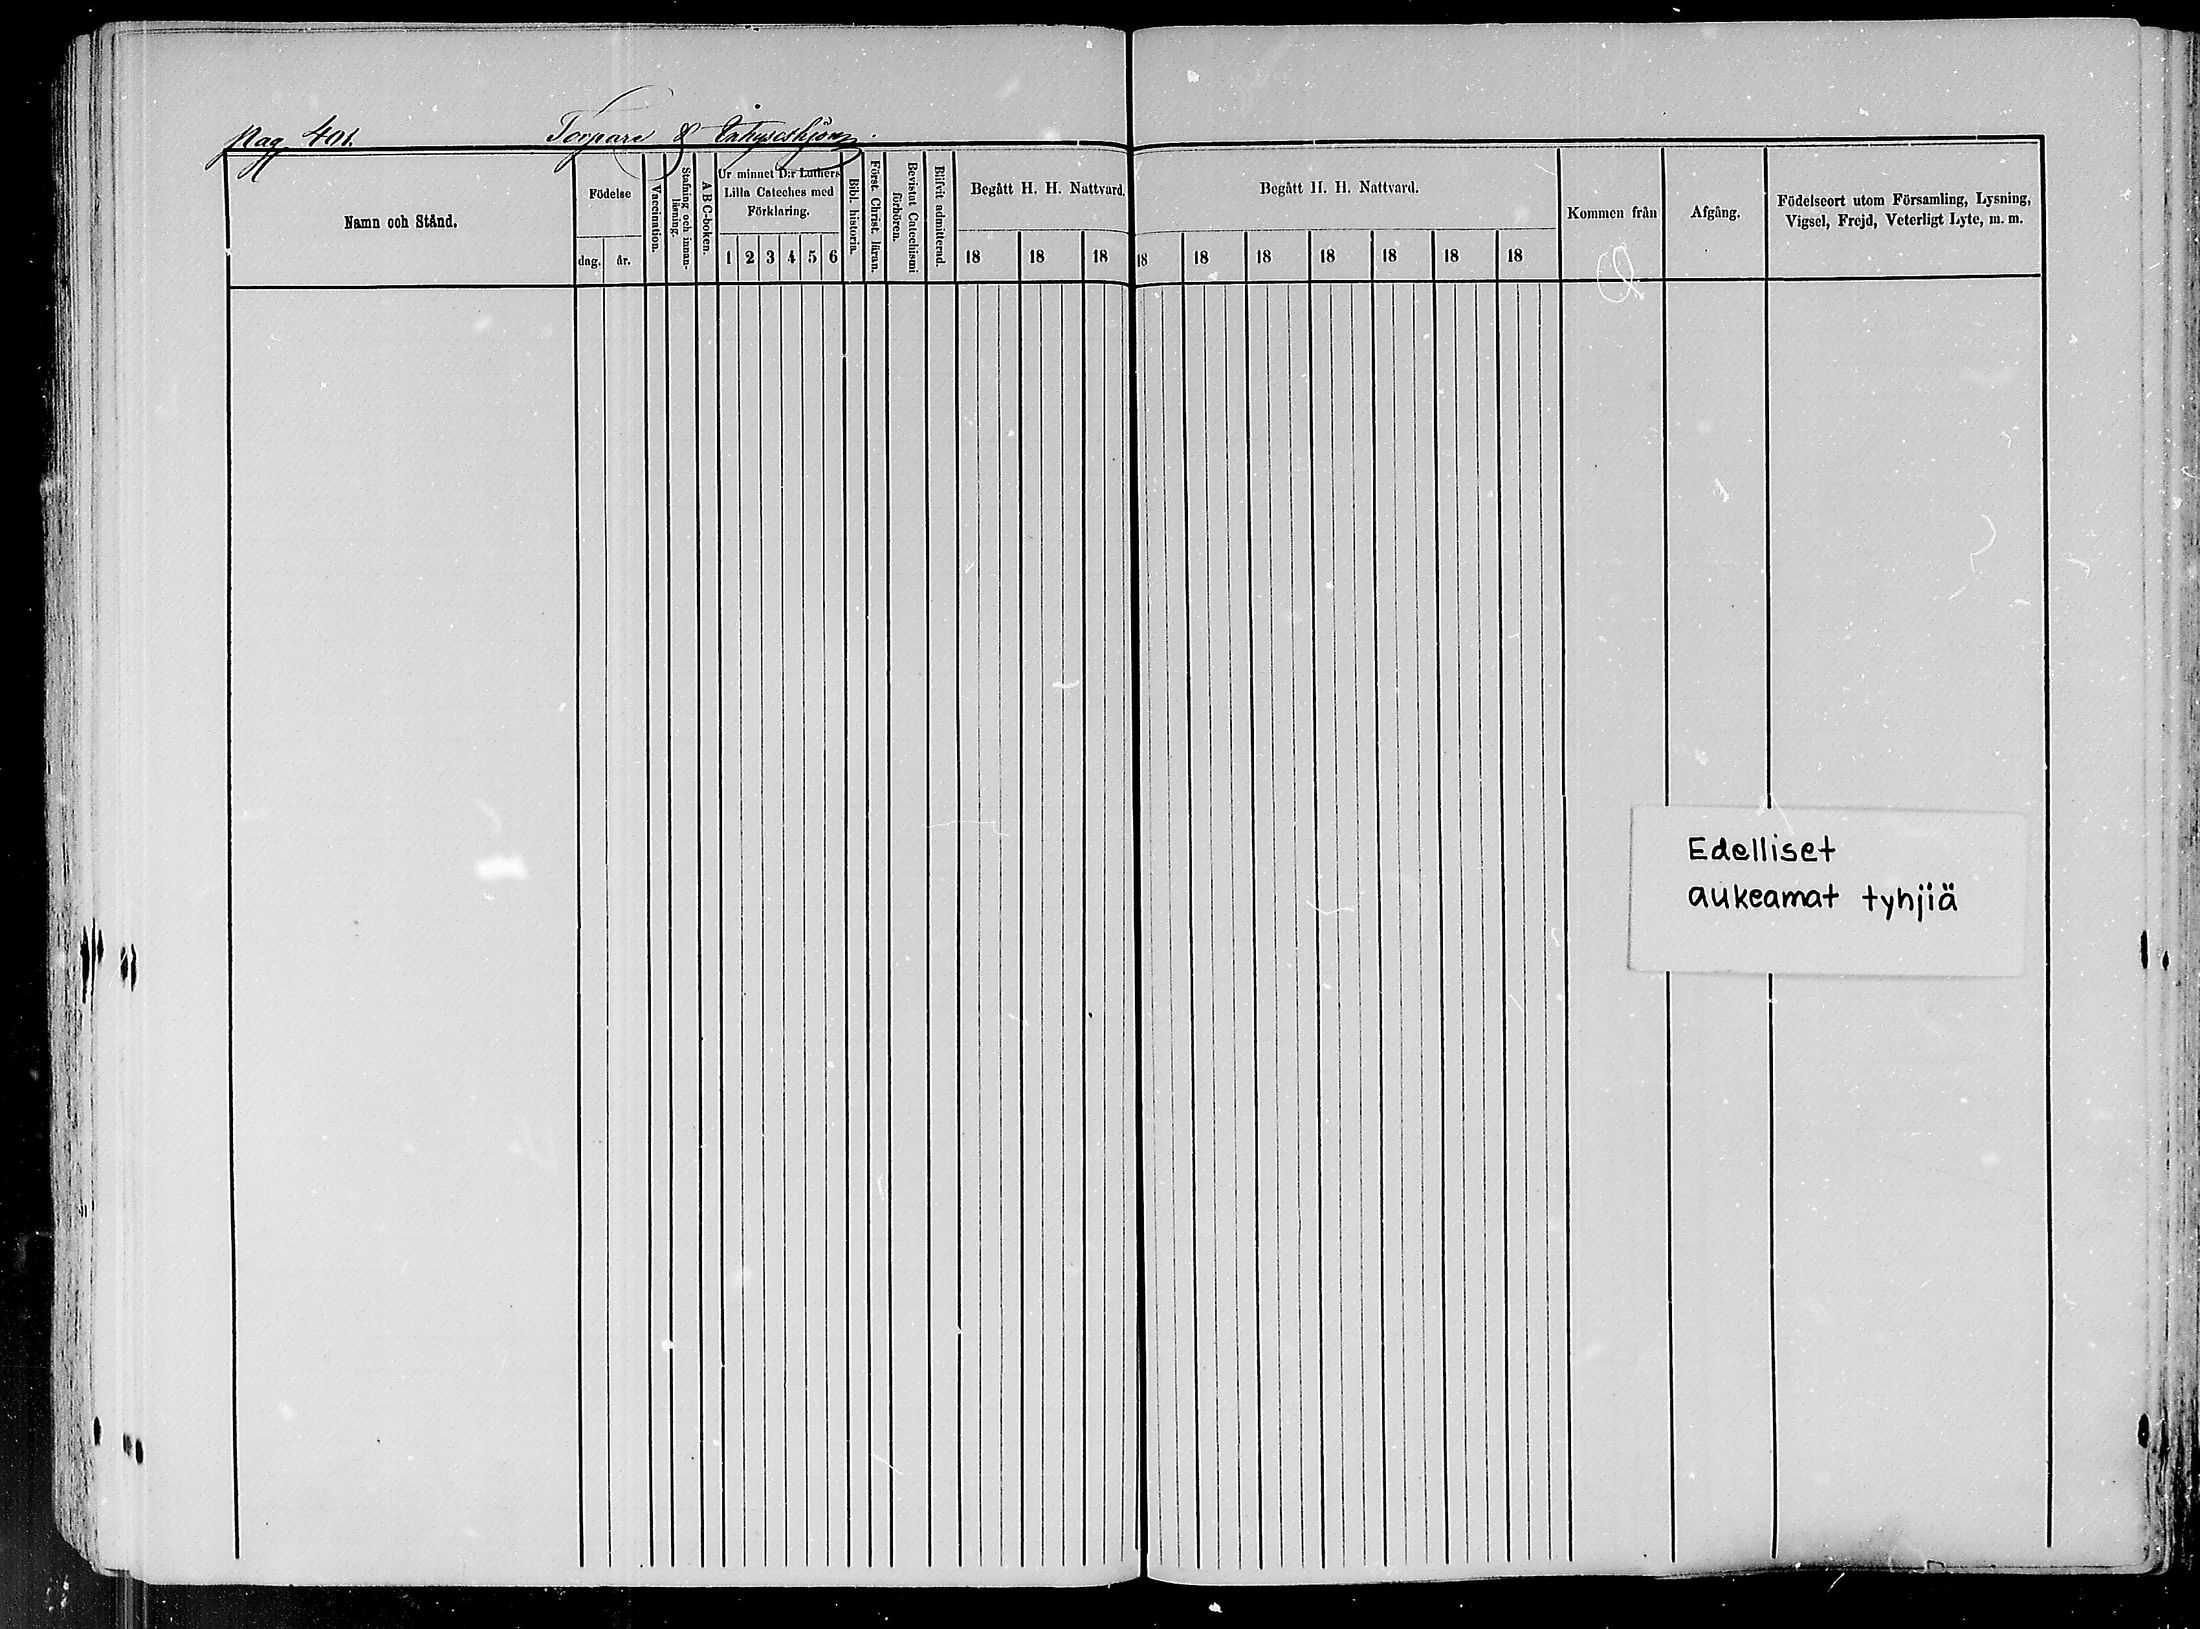 Pag 401.
Torpare & Inhyseshjon.
Namn och Stånd.
Födelse
dag.
år.
Vaccination.
Stafning och innan-
läsning.
ABC-boken.
Ur minnet D:r Luthers
Lilla Cateches med
Förklaring.
1 2 3 4 5 6
Bibl. historia.
Först. Christ. läran.
Bevistat Catechismi
förhören.
Blifvit admitterad.
Begått H. H. Nattvard.
18 18 18
Begått H. H. Nattvard.
18 18 18 18 18 18 18
Kommen från
Afgång.
Födelseort utom Församling, Lysning,
Vigsel, Frejd, Veterligt Lyte, m. m.
Edelliset
aukeamat tyhjiä